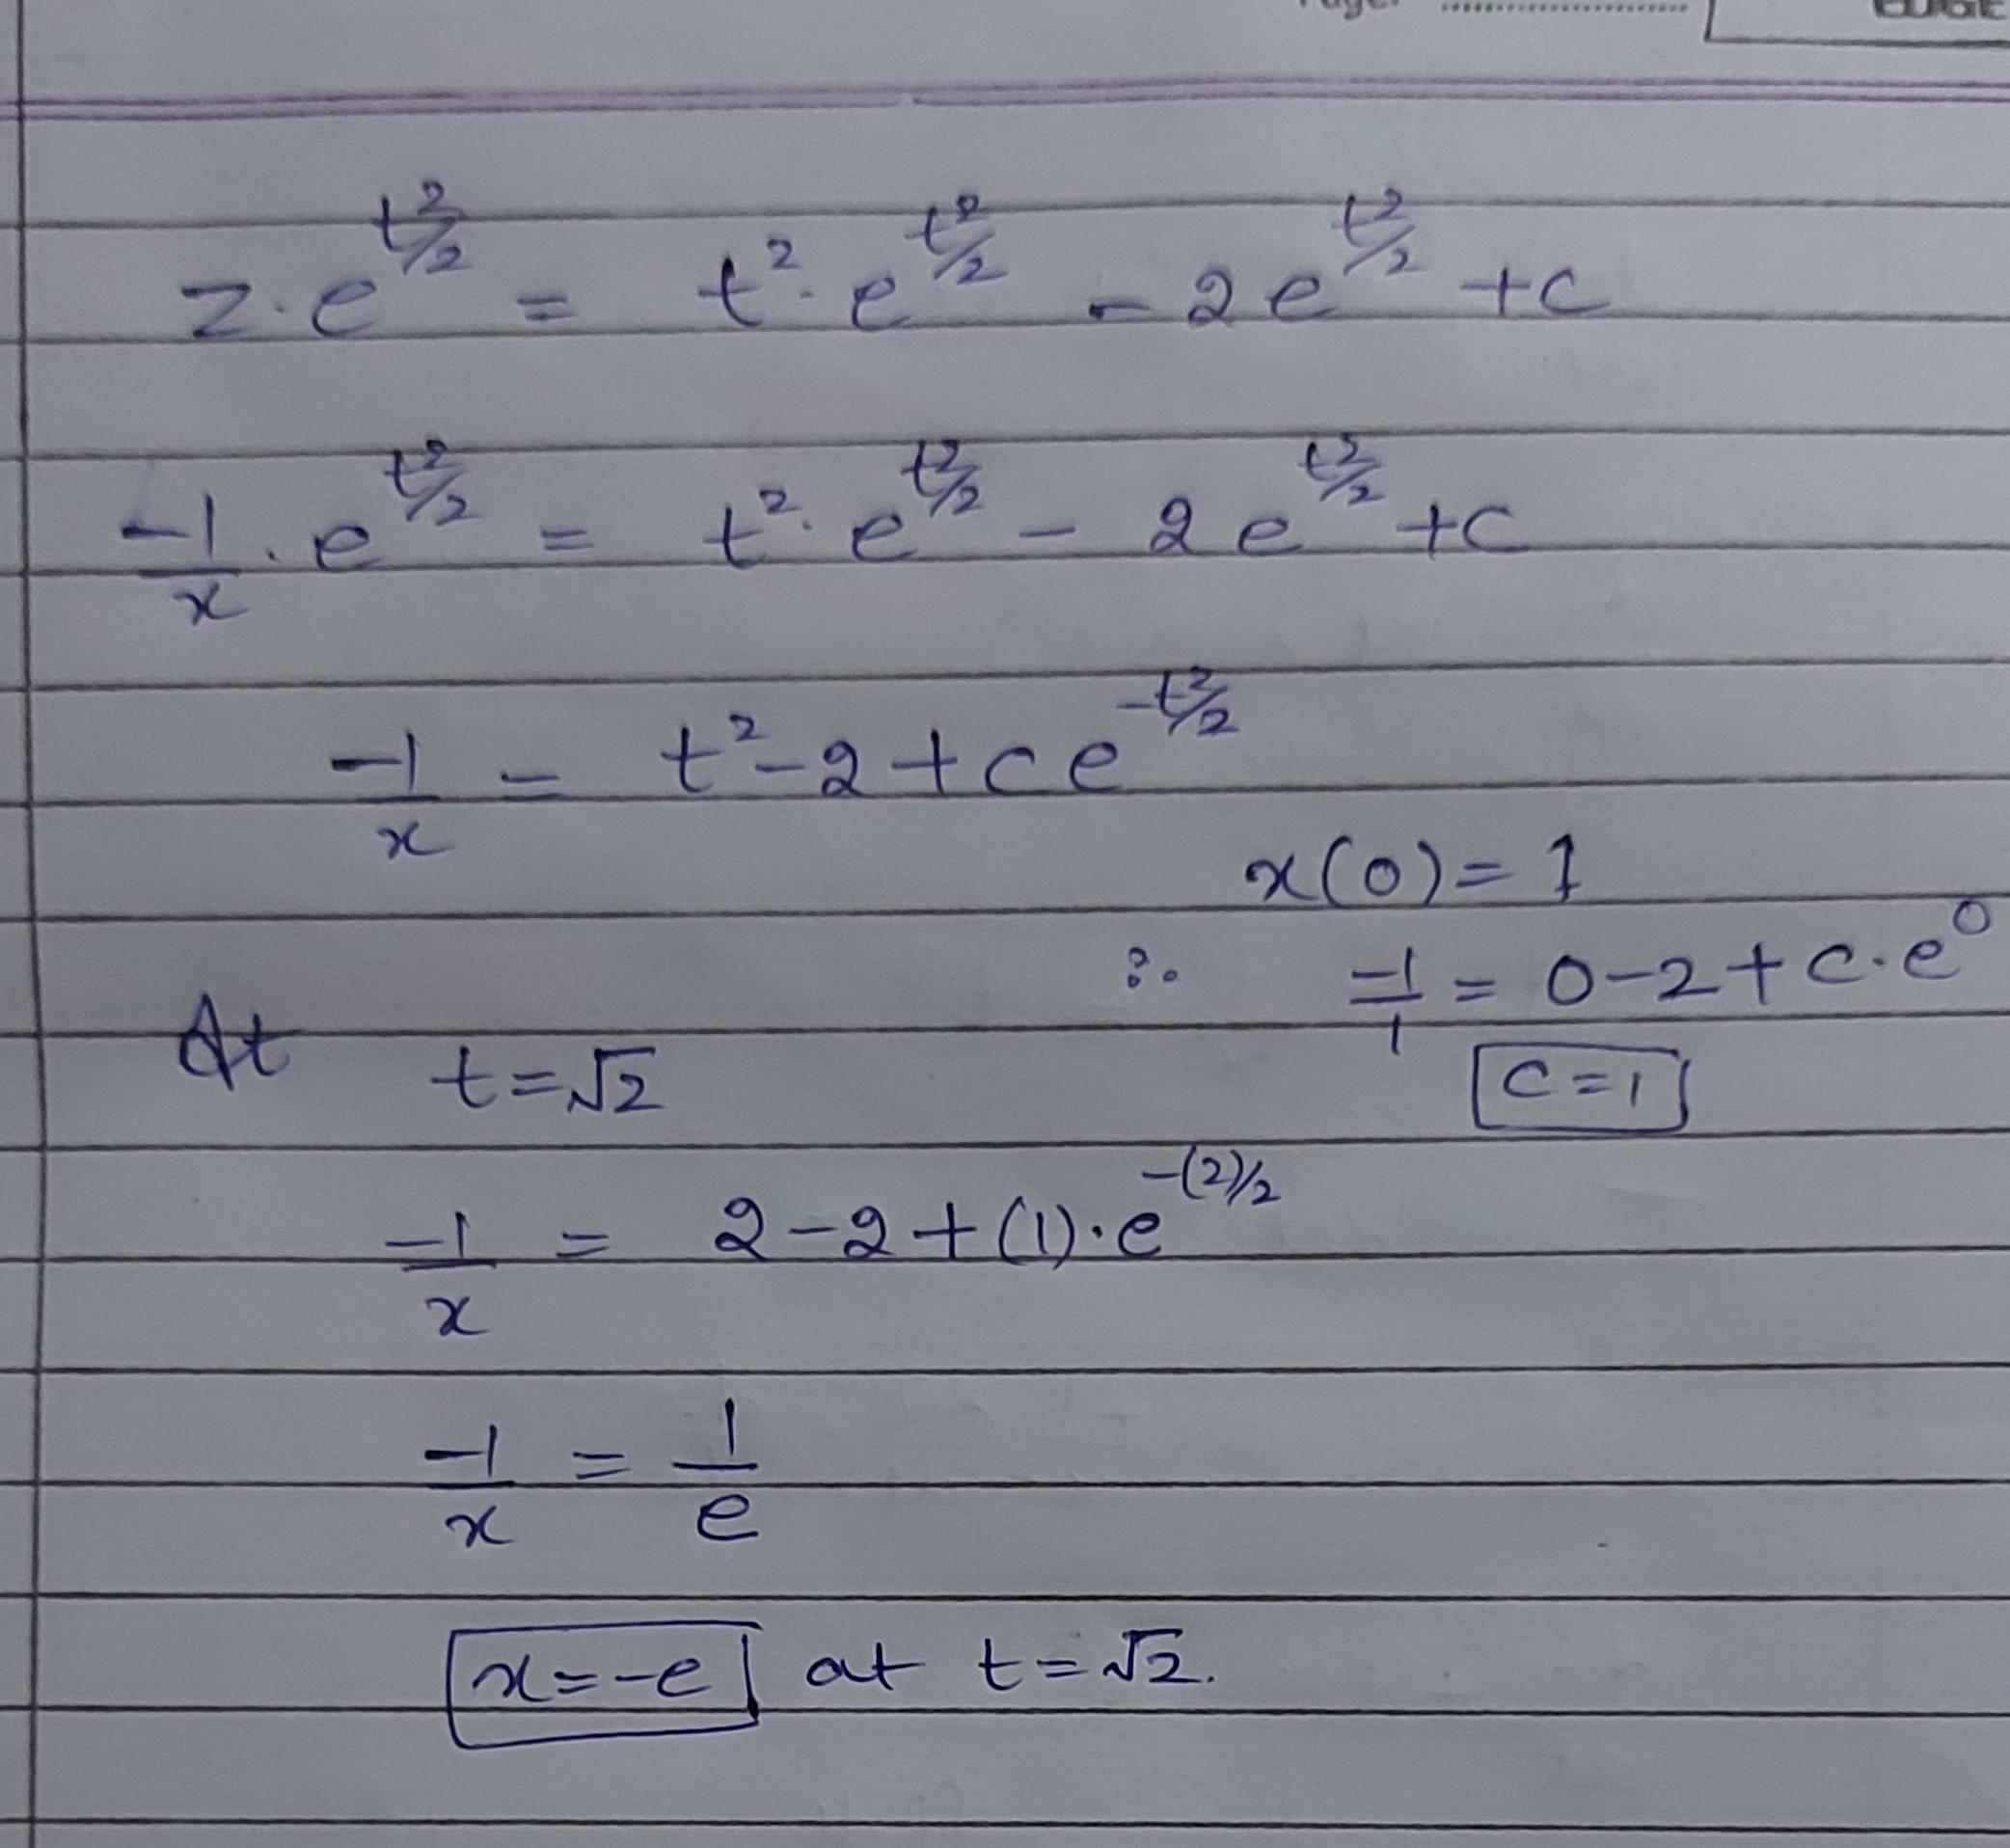 z·e^{t²/2} = t²·e^{t²/2} - 2e^{t²/2} +c
-1/x · e^{t²/2} = t²·e^{t²/2} - 2e^{t²/2} +c
-1/x = t²-2+ce^{-t²/2}
x(0)=1
∴ -1/1 = 0-2+c·e^0
c=1
At t=√2
-1/x = 2-2+(1)·e^{-(2)/2}
-1/x = 1/e
x=-e at t=√2.